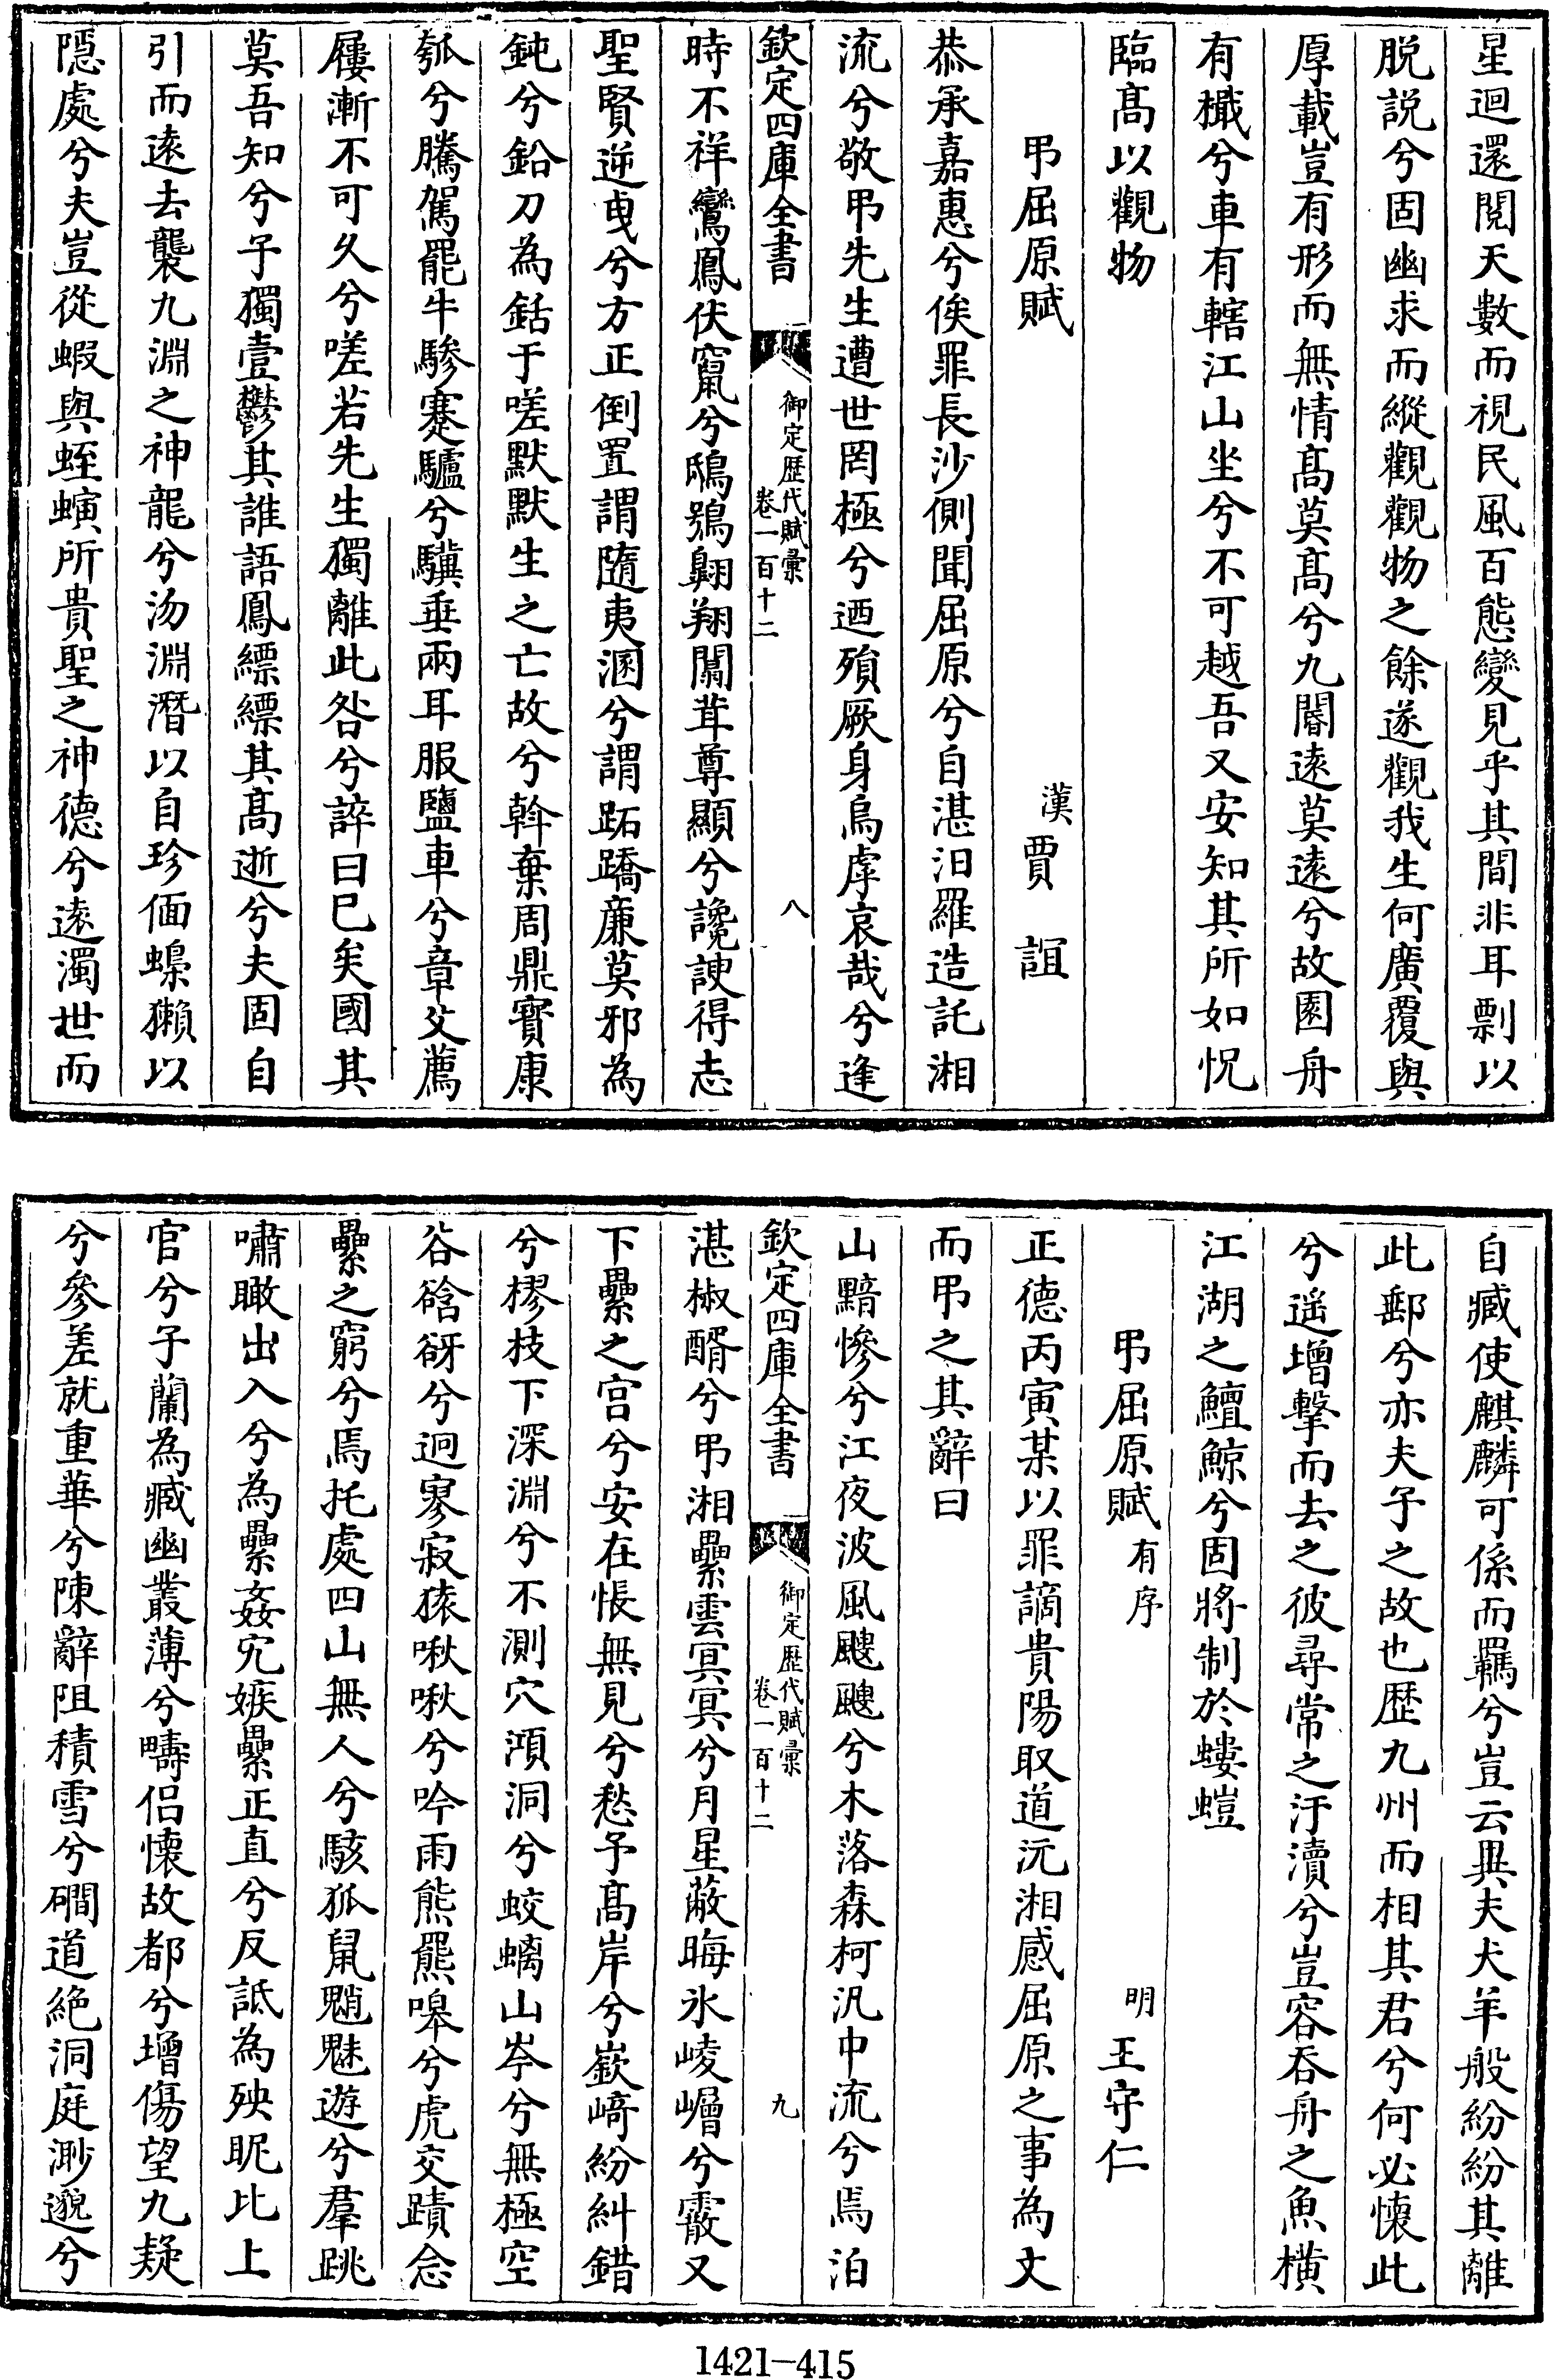 星迴還閱天數而視民風百態變見乎其間非耳剽以
脱説兮固幽求而縱觀觀物之餘遂觀我生何廣覆與
厚載豈有形而無情髙莫髙兮九閽逺莫逺兮故園舟
有檥兮車有轄江山坐兮不可越吾又安知其所如怳
臨髙以觀物
弔屈原賦 漢賈誼
恭承嘉惠兮俟罪長沙側聞屈原兮自湛汨羅造託湘
流兮敬弔先生遭世罔極兮迺殞厥身烏虖哀哉兮逢
欽定四庫全書 御定歴代賦彙 卷一百十二 八
時不祥鸞鳳伏竄兮鴟鴞翺翔闒茸尊顯兮讒諛得志
聖賢逆曵兮方正倒置謂隨夷溷兮謂跖蹻亷莫邪為
鈍兮鉛刀為銛于嗟默默生之亡故兮斡棄周鼎寳康
瓠兮騰駕罷牛驂蹇驢兮驥垂兩耳服鹽車兮章父薦
屨漸不可久兮嗟若先生獨離此咎兮誶曰已矣國其
莫吾知兮子獨壹鬱其誰語鳳縹縹其髙逝兮夫固自
引而逺去襲九淵之神龍兮沕淵潛以自珍偭蟂獺以
隱處兮夫豈從蝦與蛭螾所貴聖之神德兮逺濁世而
自臧使麒麟可係而羈兮豈云異夫犬羊般紛紛其離
此郵兮亦夫子之故也歴九州而相其君兮何必懐此
兮遥增擊而去之彼尋常之汙瀆兮豈容吞舟之魚横
江湖之鱣鯨兮固將制於螻螘
弔屈原賦 有序 明王守仁
正德丙寅某以罪謫貴陽取道沅湘感屈原之事為文
而弔之其辭曰
山黯慘兮江夜波風颼颼兮木落森柯汎中流兮焉泊
欽定四庫全書 御定歴代賦彙 卷一百十二 九
湛椒醑兮弔湘纍雲冥冥兮月星蔽晦氷崚嶒兮霰又
下纍之宫兮安在悵無見兮愁予髙岸兮嶔﨑紛糾錯
兮樛枝下深淵兮不測穴澒洞兮蛟螭山岑兮無極空
谷谽谺兮迥寥寂猿啾啾兮吟雨熊羆嘷兮虎交蹟念
纍之窮兮焉托處四山無人兮駭狐鼠魈魅遊兮羣跳
嘯瞰出入兮為纍姦宄嫉纍正直兮反詆為殃昵比上
官兮子蘭為臧幽叢薄兮疇侣懐故都兮增傷望九疑
兮參差就重華兮陳辭阻積雪兮磵道絶洞庭渺邈兮
1421-415